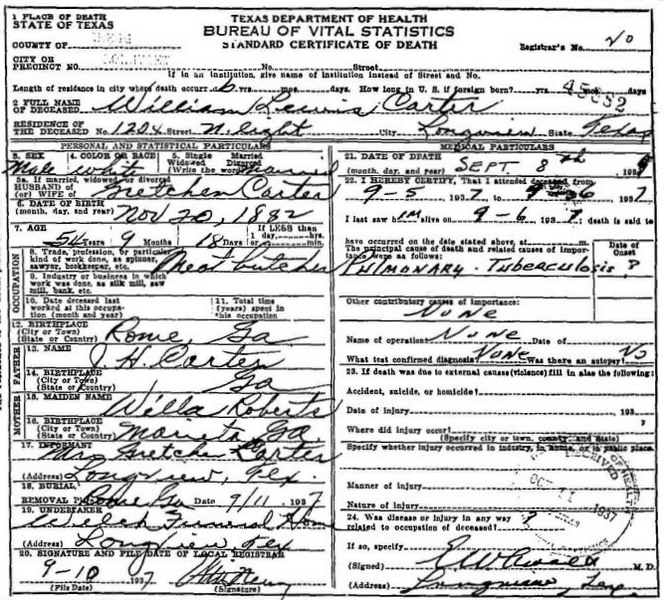 1 PLACE OF DEATH
STATE OF TEXAS
COUNTY OF
CITY OR
PRECINCT NO. No. Street
TEXAS DEPARTMENT OF HEALTH
BUREAU OF VITAL STATISTICS
STANDARD CERTIFICATE OF DEATH
Registrar's No. 20
If in an institution, give name of institution instead of Street and No.
Length of residence in city where death occurred 6 yrs. mos. days. How long in U. S. if foreign born? yrs. mos. days
45682
2 FULL NAME OF DECEASED William Lewis Carter
RESIDENCE OF THE DECEASED No. 1204 Street N. Eight City Longview State Texas
PERSONAL AND STATISTICAL PARTICULARS
3. SEX Male 4. COLOR OR RACE White 5. Single Married Widowed Divorced (Write the word) Married
5a. If married, widowed or divorced HUSBAND OF (or) WIFE OF Gretchen Carter
6. DATE OF BIRTH (month, day, and year) Nov 20, 1882
7. AGE 54 Years 9 Months 18 Days If LESS than 1 day hrs. or min.
OCCUPATION
8. Trade, profession, or particular kind of work done, as spinner, sawyer, bookkeeper, etc. Meat butcher
9. Industry or business in which work was done, as silk mill, saw mill, bank, etc.
10. Date deceased last worked at this occupation (month and year)
11. Total time (years) spent in this occupation
12. BIRTHPLACE (City or Town) (State or Country) Rome Ga
FATHER
13. NAME J H. Carter
14. BIRTHPLACE (City or Town) (State or Country) Ga
MOTHER
15. MAIDEN NAME Willa Roberts
16. BIRTHPLACE (State or Country) Marieta Ga.
17. INFORMANT Mrs Gretchen Carter
(Address) Longview, Tex.
18. BURIAL REMOVAL Rome Ga Date 9/11 1937
19. UNDERTAKER Welch Funeral Home
(Address) Longview Tex
20. SIGNATURE AND FILE DATE OF LOCAL REGISTRAR
9-10 1937
(File Date) (Signature)
MEDICAL PARTICULARS
21. DATE OF DEATH (month, day, and year) SEPT. 8th
22. I HEREBY CERTIFY, That I attended deceased from
9-5 1937 1937
I last saw im alive on 9-6 1937 death is said to
have occurred on the date stated above, at m.
The principal cause of death and related causes of importance were as follows: Date of Onset
PULMONARY TUBERCULOSIS ?
Other contributory causes of importance:
NONE
Name of operation NONE Date of
What test confirmed diagnosis? NONE Was there an autopsy? NO
23. If death was due to external causes (violence) fill in also the following:
Accident, suicide, or homicide?
Date of injury 193
Where did injury occur? (Specify city or town, county, and State)
Specify whether injury occurred in industry, in home, or in public place.
Manner of injury
Nature of injury
RECEIVED
OCT 11 1937
24. Was disease or injury in any way related to occupation of deceased? ?
If so, specify
(Signed) M. D.
(Address) Longview Texas